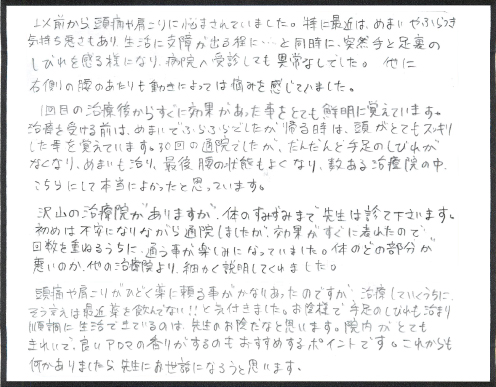 以前から、頭痛や肩こりに悩まされていました。特に最近は、めまいやふらつき
気持ち悪さもあり、生活に支障が出る程に…と同時に、突然手と足裏の
しびれを感る様になり、病院へ受診しても異常なしでした。他に
右側の腰のあたりも動きによっては痛みを感じていました。
1回目の治療後からすぐに効果があった事をとても鮮明に覚えています。
治療を受ける前は、めまいでふらふらでしたが帰る時は、頭がとてもスッキリ
した事を覚えています。30回の通院でしたが、だんだんと手足のしびれが
なくなり、めまいも治り、最後腰の状態もよくなり、数ある治療院の中、
こちらにして本当によかったと思っています。
沢山の治療院がありますが、体のすみずみまで先生は診て下さいます。
初めは不安になりながら通院しましたが、効果がすぐに表れたので
回数を重ねるうちに、通う事が楽しみになっていました。体のどの部分が
悪いのか、他の治療院より、細かく説明してくれました。
頭痛や肩こりがひどく薬に頼る事がかなりあったのですが、治療していくうちに、
そう言えば最近薬を飲んでない!!と気付きました。お陰様で手足のしびれも治まり
順調に生活できているのは、先生のお陰だなと思います。院内がとても
きれいで、良いアロマの香りがするのもおすすめするポイントです。これからも
何かありましたら先生にお世話になろうと思います。